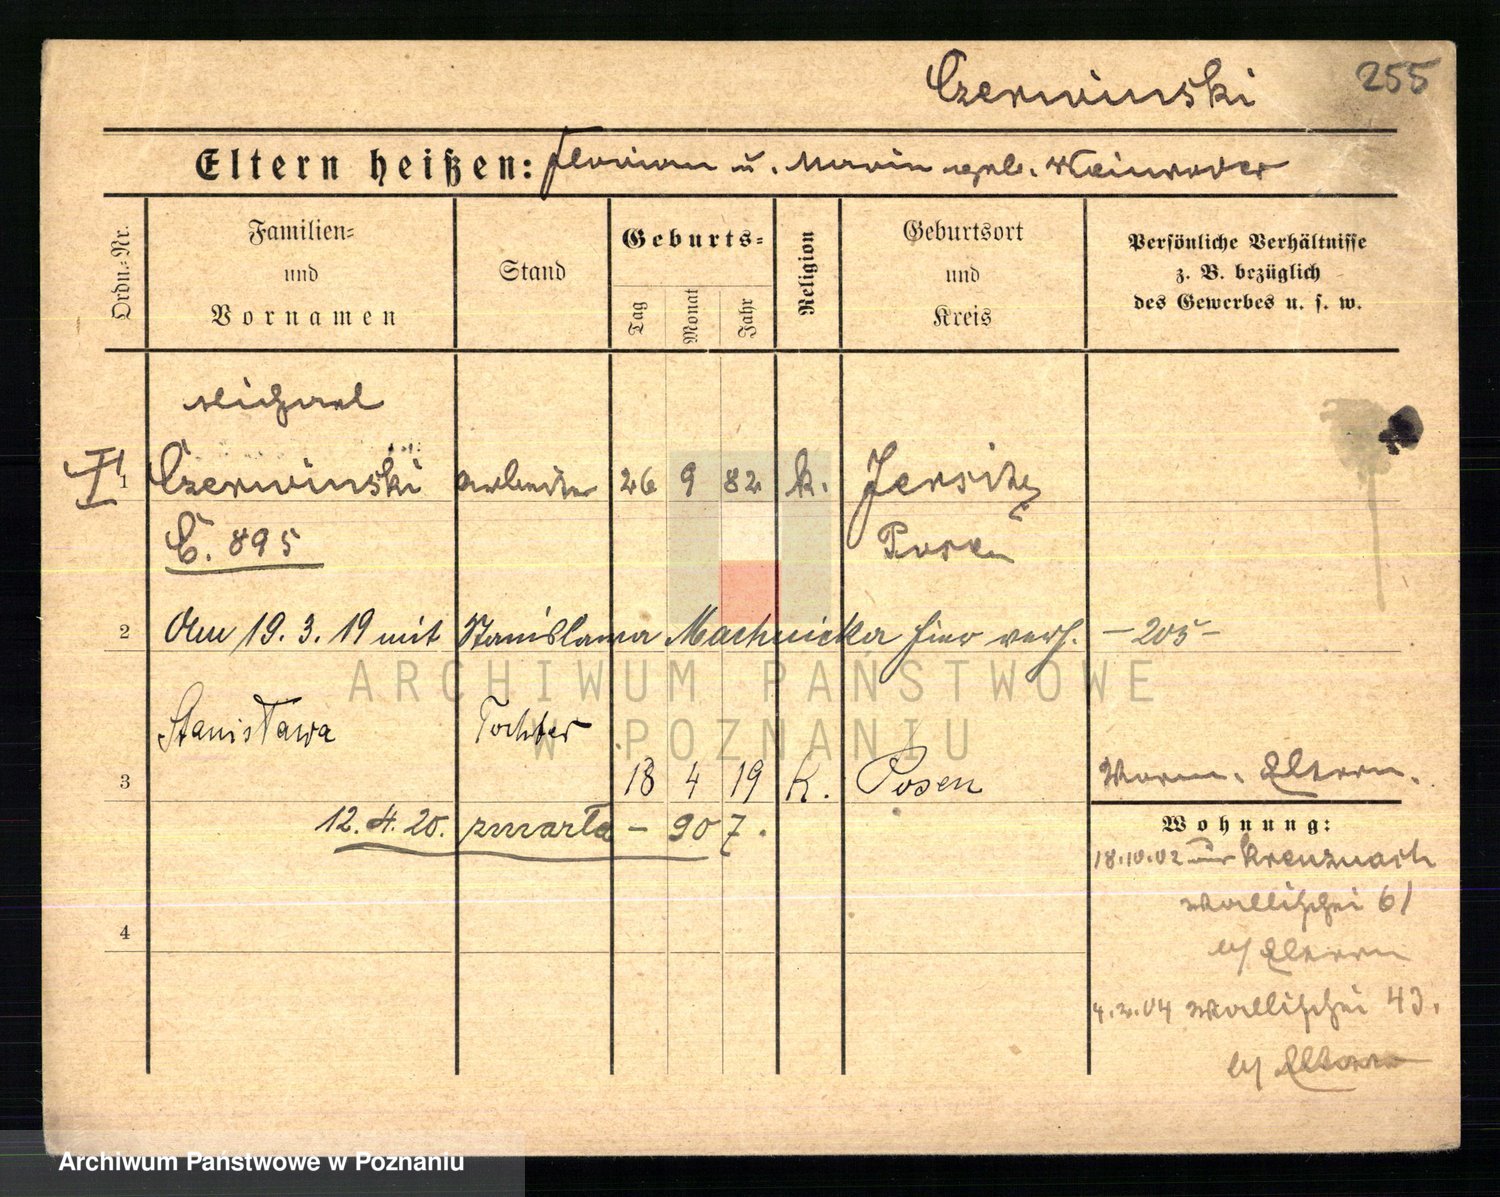 Czerwinski 255
Eltern heißen: Florian u. Maria geb.
Ordn.-Nr.
Familien-
und
Vornamen
Stand
Geburts-
Tag
Monat
Jahr
Religion
Geburtsort
und
Kreis
Persönliche Verhältnisse
z. B. bezüglich
des Gewerbes u. s. w.
Michael
1 Czerwinski Arbeiter 26 9 82 k. Jersitz
C. 895 Posen
2 Am 19. 3. 19 mit Stanislawa Machnicka hier verh. - 205 -
Stanisława Tochter
3 18 4 19 k. Posen Vorm. Eltern.
12. 4. 20. zmarła - 907.
Wohnung:
18.10.02 Kreuznach
Wallischei 61
b/ Eltern
4
4.2.04 Wallischei 43.
b/ Eltern
ARCHIWUM PAŃSTWOWE
W POZNANIU
Archiwum Państwowe w Poznaniu